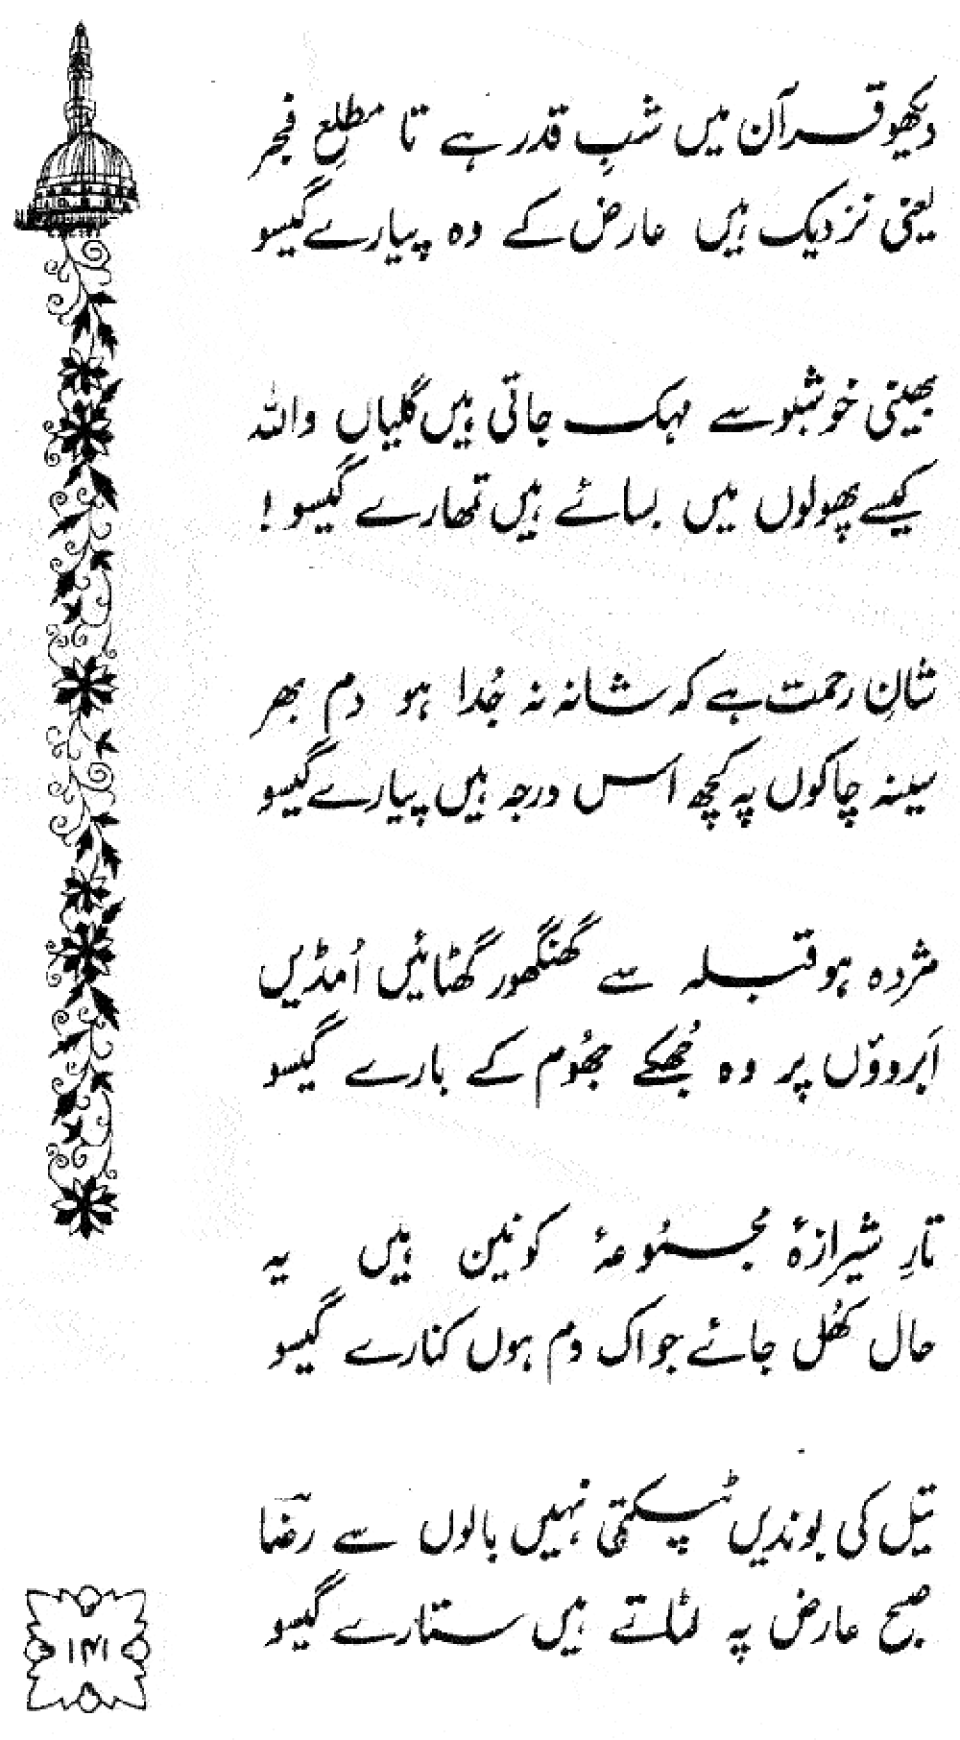 دیکھو قرآن میں شبِ قدر ہے تا مطلعِ فجر
یعنی نزدیک ہیں عارض کے وہ پیارے گیسو
بھینی خوشبو سے مہک جاتی ہیں گلیاں واللہ
کیسے پھولوں میں بسائے ہیں تمھارے گیسو !
شانِ رحمت ہے کہ شانہ نہ جُدا ہو دم بھر
سینہ چاکوں پہ کچھ اس درجہ ہیں پیارے گیسو
مژدہ ہو قبلہ سے گھنگھور گھٹائیں اُمڈیں
اَبروؤں پر وہ جُھکے جھُوم کے بارے گیسو
تارِ شیرازۂ مجمُوعۂ کونین ہیں یہ
حال کھُل جائے جو اک دم ہوں کنارے گیسو
تیل کی بوندیں ٹپکتی نہیں بالوں سے رضؔا
صبح عارض پہ لٹاتے ہیں ستارے گیسو
۱۴۱